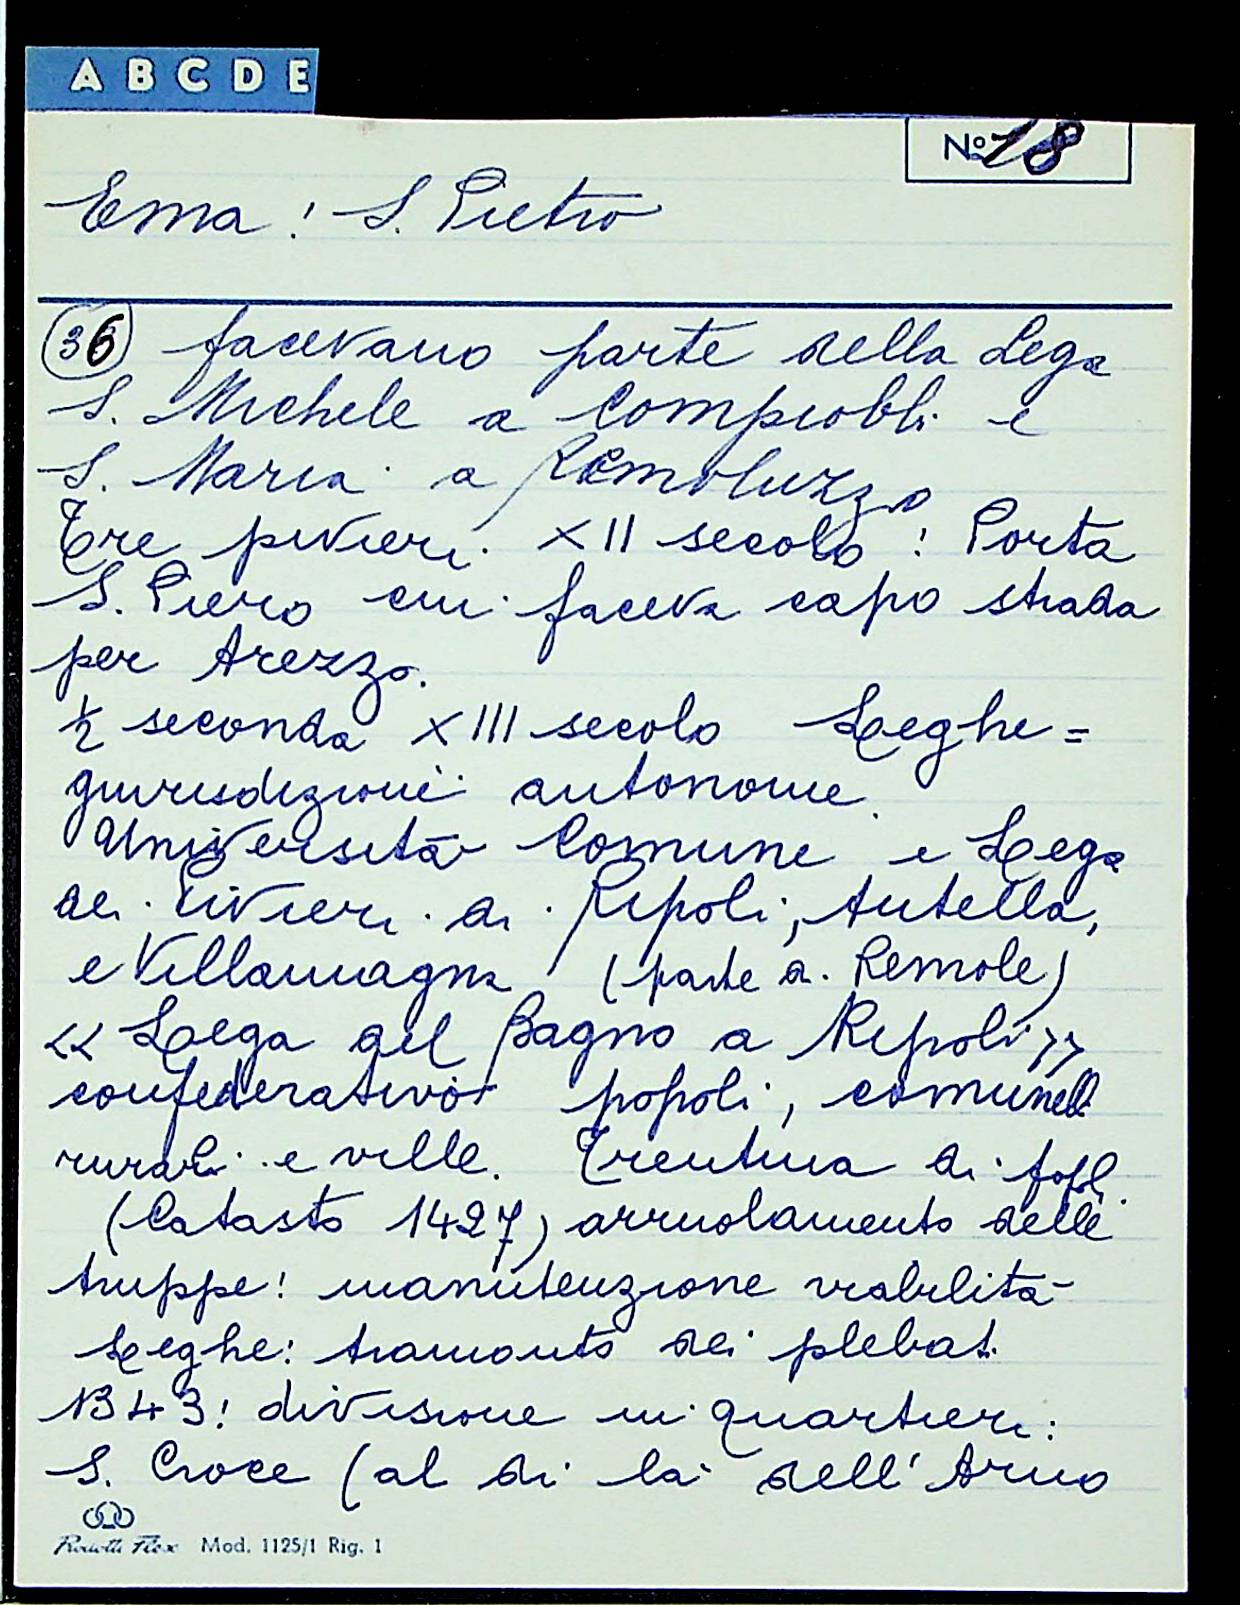 A B C D E
No 18
Ema: S. Pietro
36 facevano parte della Lega
S. Michele a Compiobbi e
S. Maria a Remoluzzo
Tre pivieri. XII secolo: Porta
S. Piero cui faceva capo strada
per Arezzo.
½ seconda XIII secolo Leghe =
giurisdizioni autonome.
Università Comune e Lega
dei Pivieri di Ripoli, Antella,
e Villamagna (parte di Remole)
<< Lega del Bagno a Ripoli >>
popoli, comunelli
rurali e ville. Trentina di
(Catasto 1427) arruolamento delle
truppe: manutenzione viabilità
Leghe: tramonto dei plebat.
1343: divisione in quartieri:
S. Croce (al di là dell'Arno
Mod. 1125/1 Rig. 1